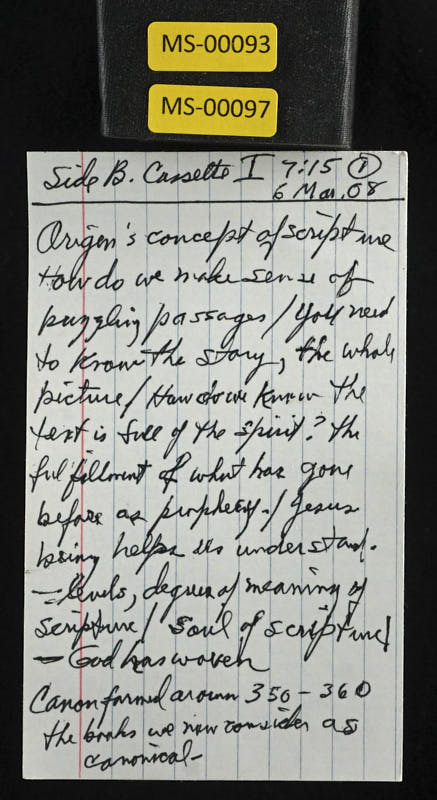 MS-00093
MS-00097
Side B. Cassette I 7:15 ①
6 Mar. 08
Origen's concept of scripture
How do we make sense of
puzzling passages / You need
to know the story, the whole
picture / How do we know the
text is full of the spirit? The
fulfillment of what has gone
before as prophecy. / Jesus
being helps us understand.
— levels, degrees of meaning of
scripture / soul of scripture /
— God has woven
Canon formed aroun 350 - 360
the books we now consider as
canonical -